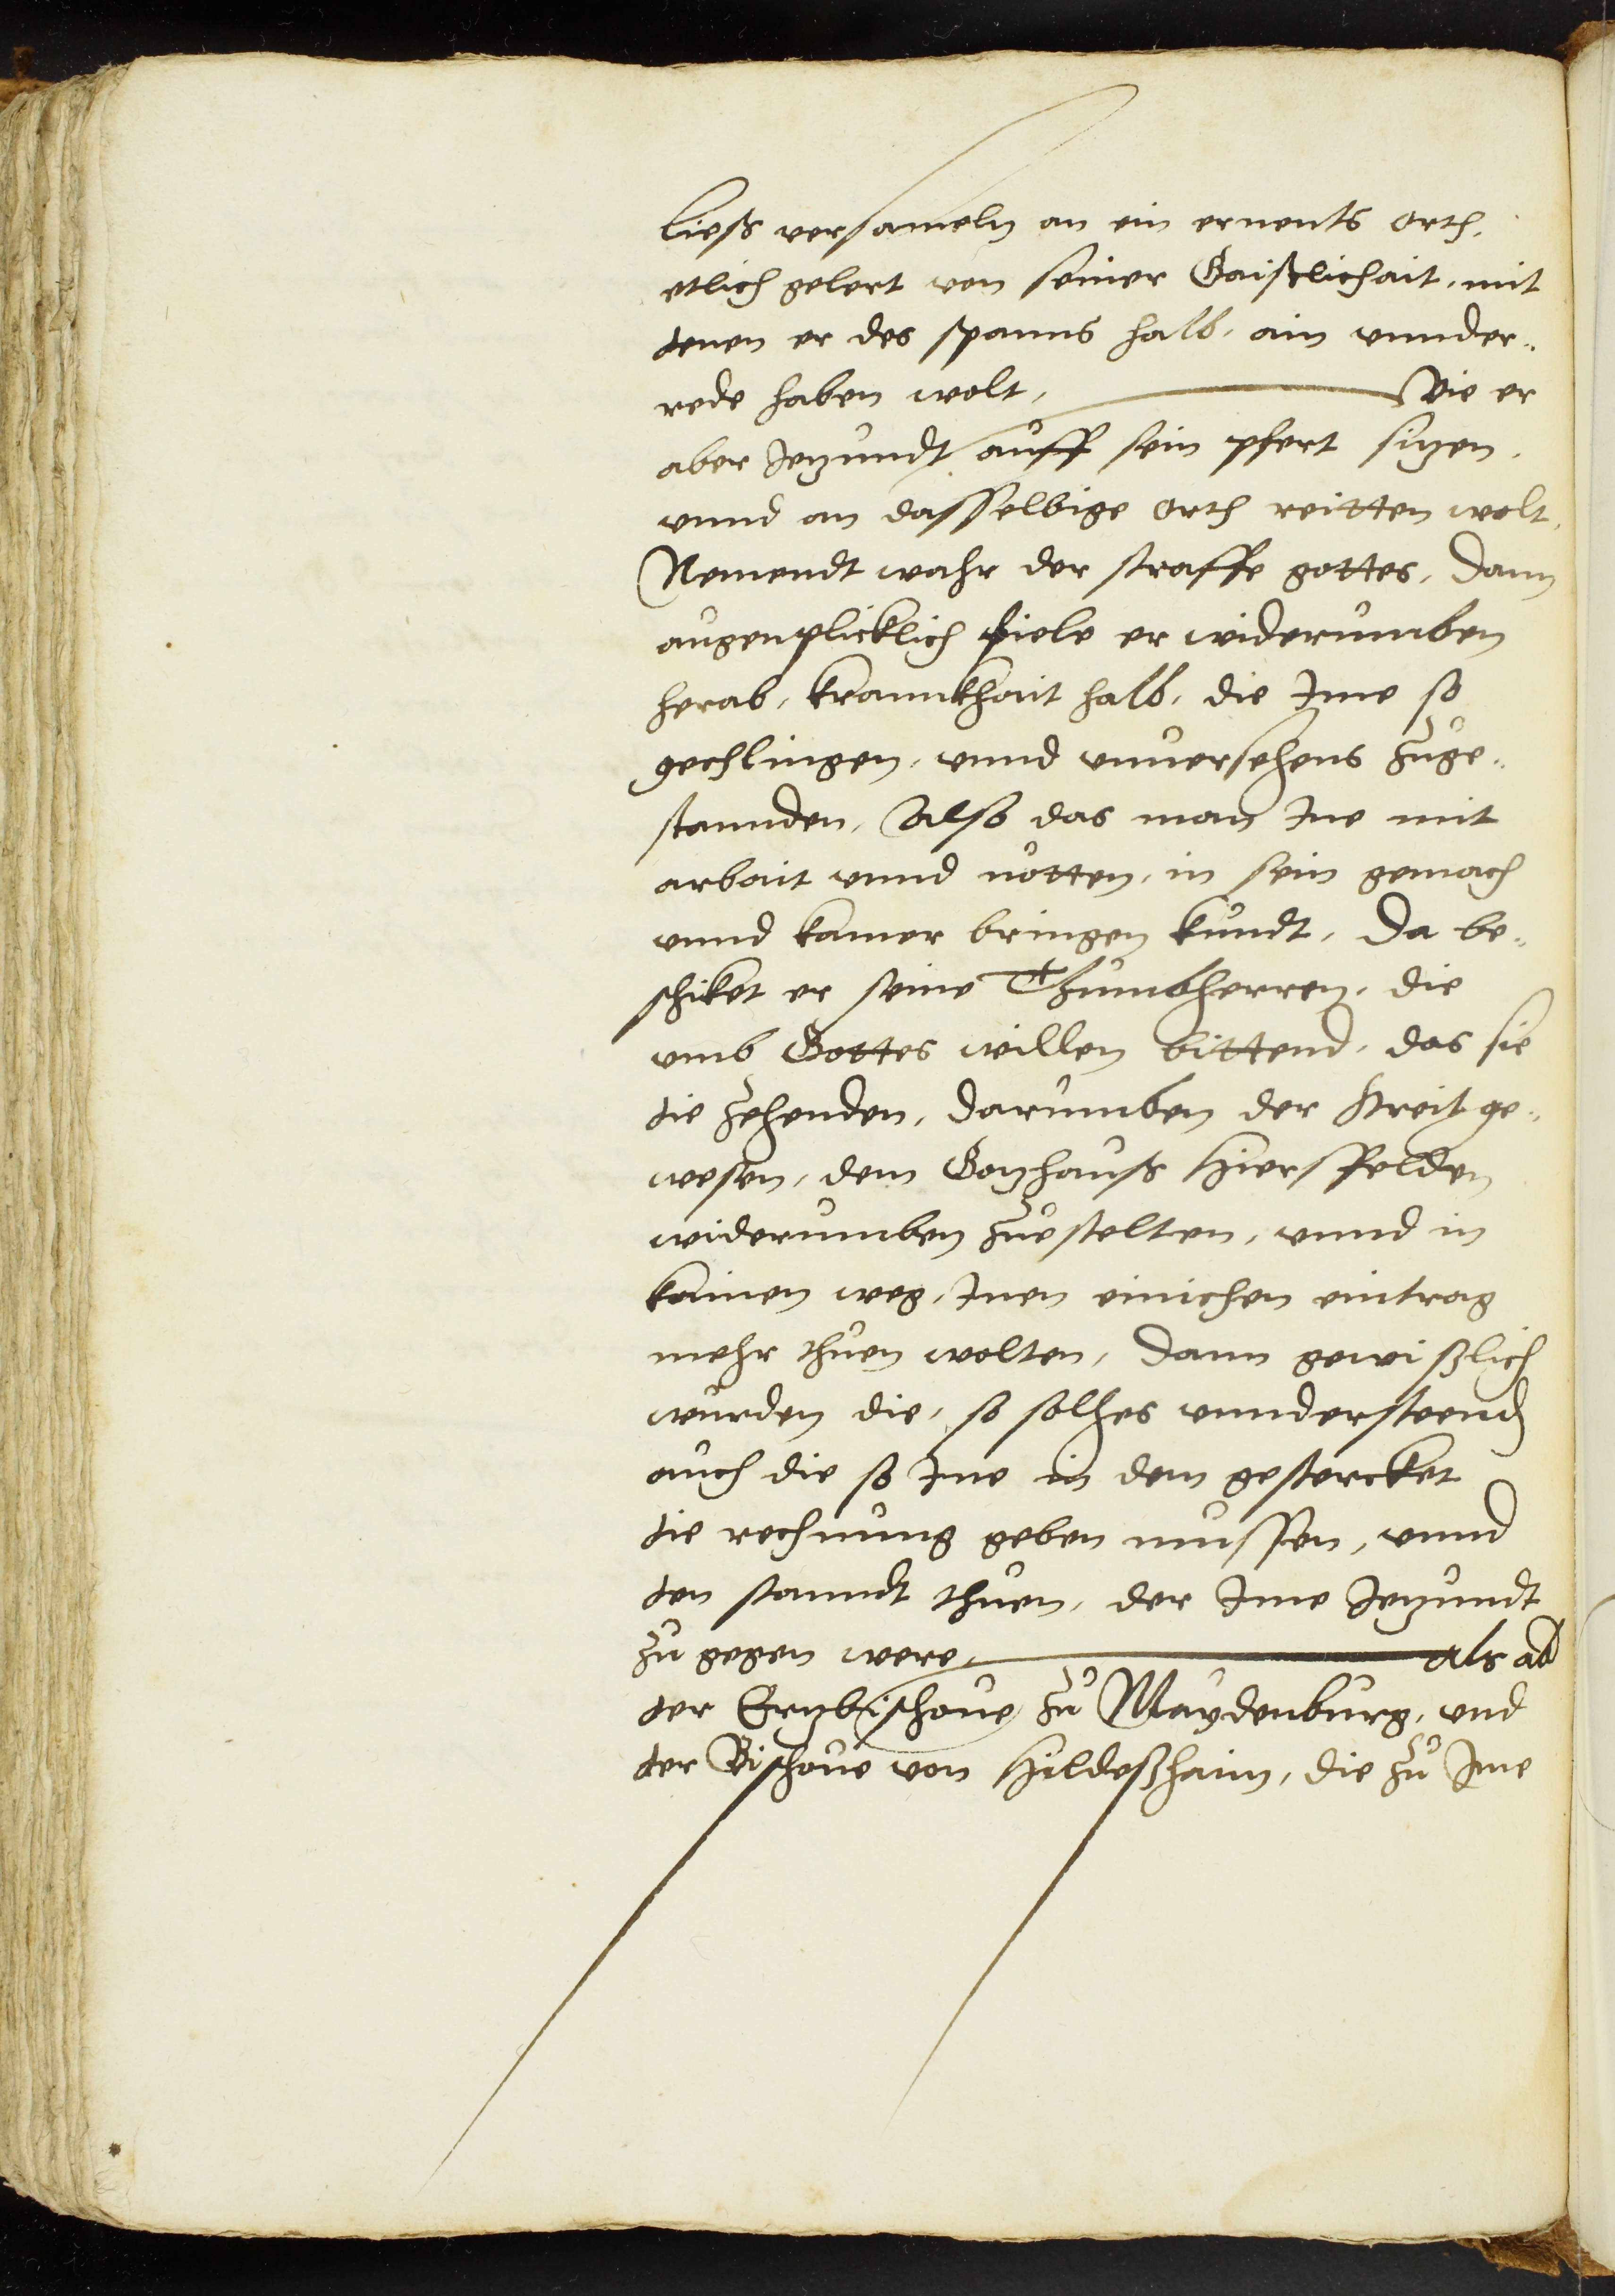 ließ versameln an ein ernents orth,
etlich gelert von seiner Gaistlichait, mit
denen er des spanns halb, ain vnnder¬
rede haben wolt, Wie er
aber Jezundt auff sein pfert sizen,
vnnd an dasselbige orth reitten wolt,
Nemendt wahr der straffe gottes, Dann
augenplicklich fiele er widerumben
herab, krannkhait halb, die Ime so
gechlingen, vnnd vnuersehens zuge¬
stannden, Also das man Ine mit
arbait vnnd nötten, in sein gemach
vnnd kamer bringen kundt, Da be¬
schiket er seine Thumbherren, die
vmb Gottes willen bittend, das sie
die zehenden, darumben der streit ge¬
wesen, dem Gozhauß Hiersfelden
widerumben zuestelten, vnnd in
kainen weg, Inen einichen eintrag
mehr thuen wolten, Dann gewißlich
wurden die, so solhes vnndersteend
auch die so Ine in dem gestercket
die rechnung geben mussen, vnnd
den stanndt thuen, der Ime Jezundt
zu gegen were, Als ab
der Erzbischoue zu Maydenburg, vnd
der Bischoue von Hildeßhaim, die zu Ime